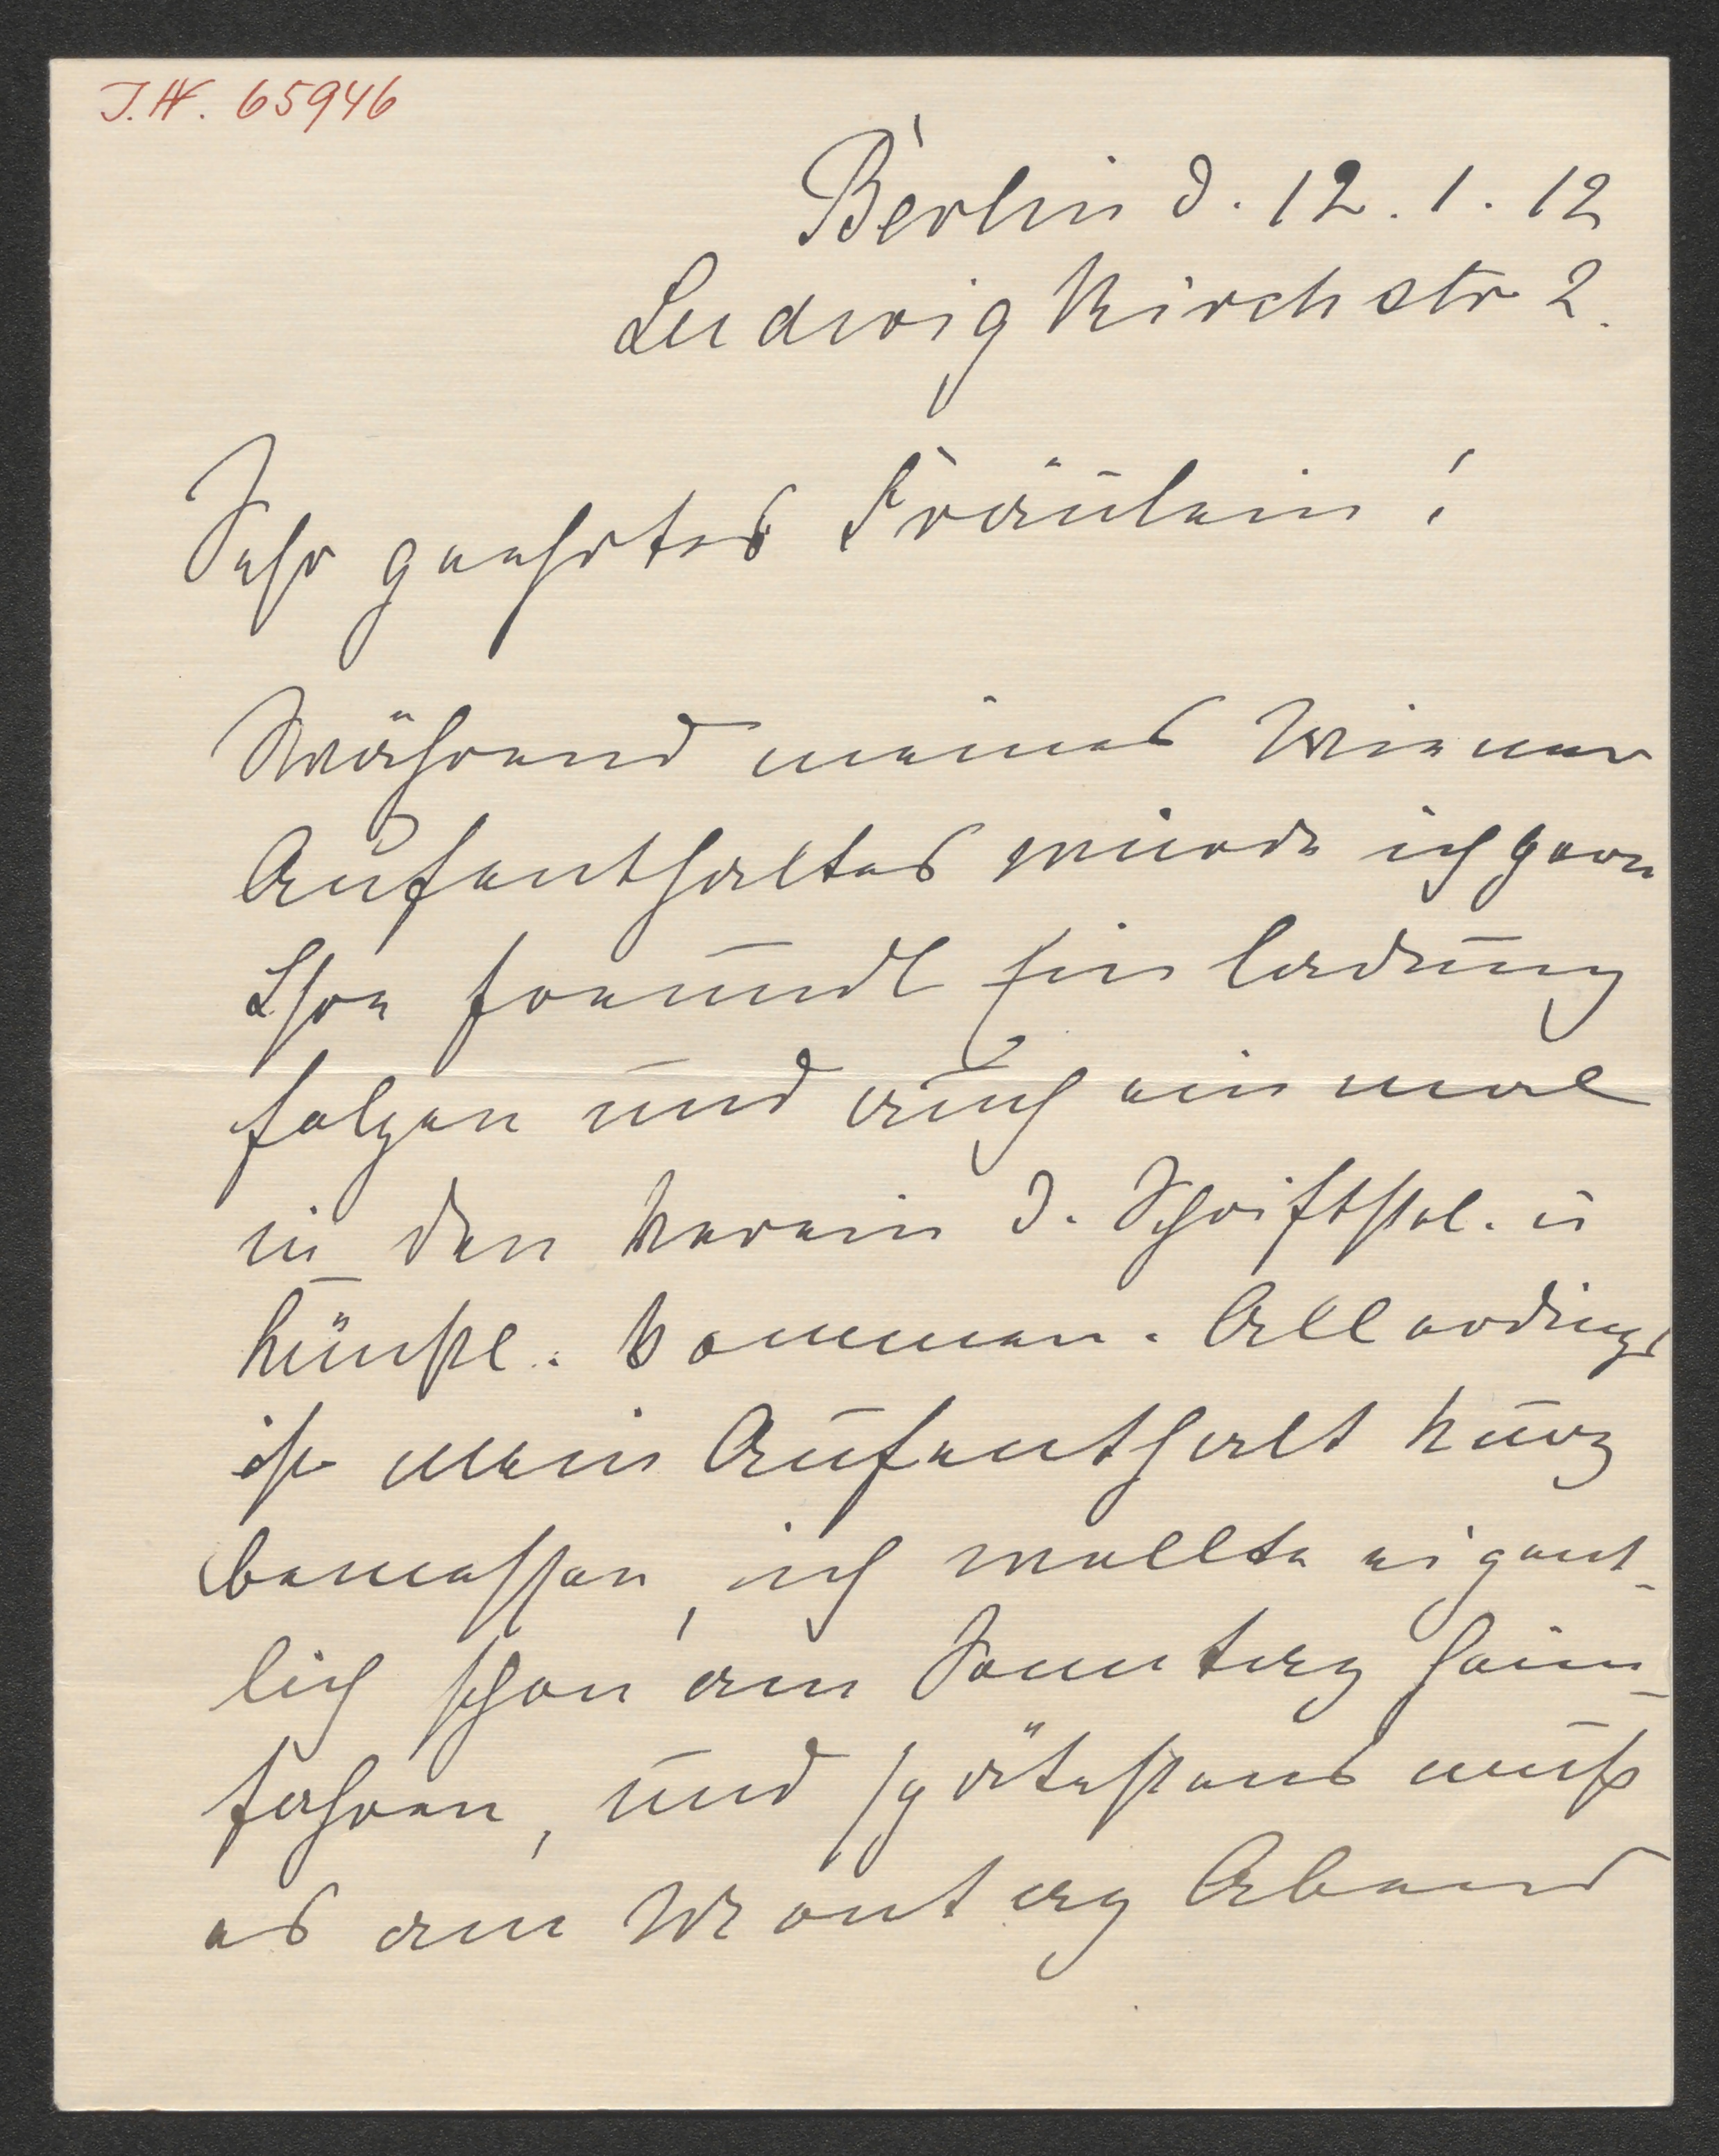 J.N. 65946
Berlin d. 12. 1. 12
Ludwig Kirchstr 2.
Sehr geehrtes Fräulein!
Während meines Wiener
Aufenthaltes würde ich gern
Ihre freundl Einladung
folgen und auch einmal
in den Verein d. Schriftstel. u
Künstl. kommen. Allerdings
ist mein Aufenthalt kurz
bemessen, ich wollte eigent-
lich schon am Sonntag heim-
fahren, und spätestens muß
es am Montag Abend